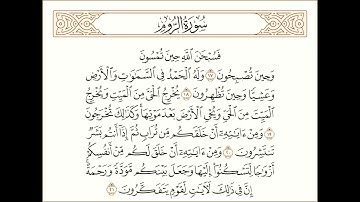 سُورَةُ الرُّومِ
فَسُبْحَانَ اللَّهِ حِينَ تُمْسُونَ
وَحِينَ تُصْبِحُونَ ١٧ وَلَهُ الْحَمْدُ فِي السَّمَاوَاتِ وَالْأَرْضِ
وَعَشِيًّا وَحِينَ تُظْهِرُونَ ١٨ يُخْرِجُ الْحَيَّ مِنَ الْمَيِّتِ وَيُخْرِجُ
الْمَيِّتَ مِنَ الْحَيِّ وَيُحْيِي الْأَرْضَ بَعْدَ مَوْتِهَا وَكَذَٰلِكَ تُخْرَجُونَ
١٩ وَمِنْ آيَاتِهِ أَنْ خَلَقَكُم مِّن تُرَابٍ ثُمَّ إِذَا أَنتُم بَشَرٌ
تَنتَشِرُونَ ٢٠ وَمِنْ آيَاتِهِ أَنْ خَلَقَ لَكُم مِّنْ أَنفُسِكُمْ
أَزْوَاجًا لِّتَسْكُنُوا إِلَيْهَا وَجَعَلَ بَيْنَكُم مَّوَدَّةً وَرَحْمَةً
إِنَّ فِي ذَٰلِكَ لَآيَاتٍ لِّقَوْمٍ يَتَفَكَّرُونَ ٢١